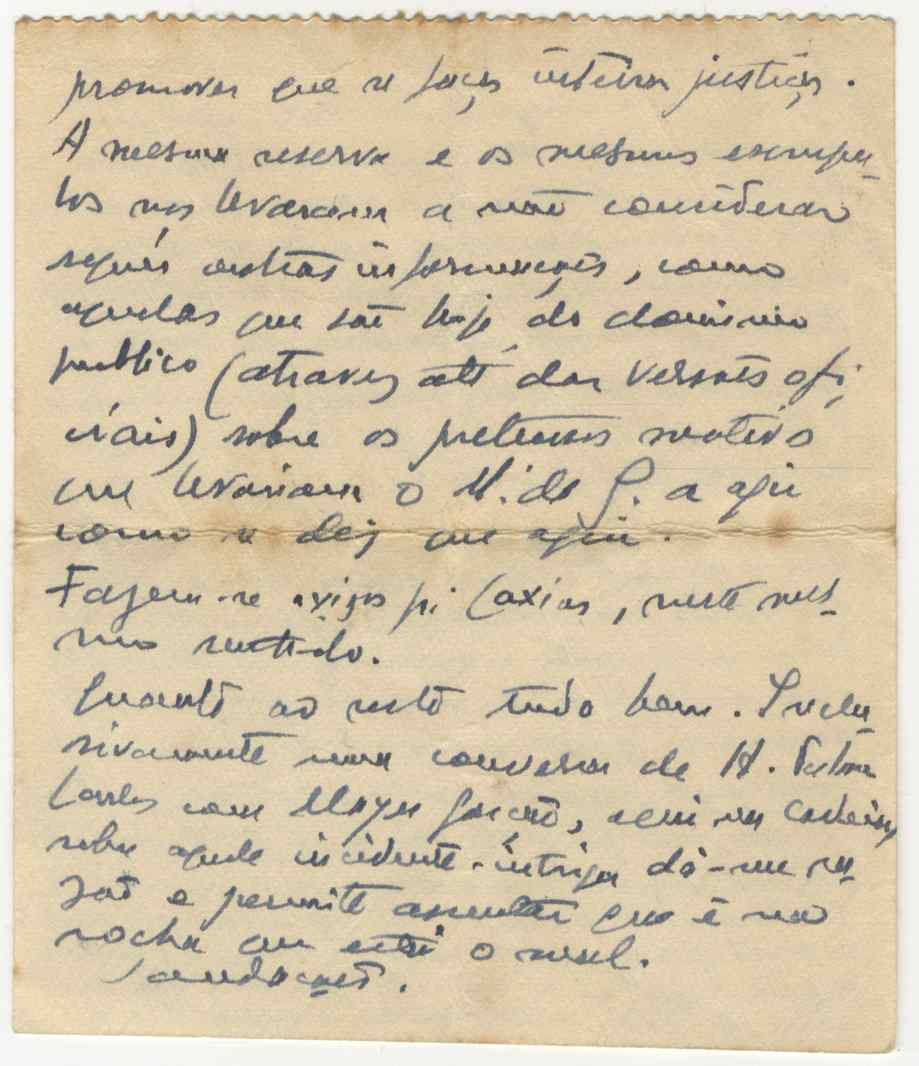 promover que se faça inteira justiça.
A mesma reserva e os mesmos escrupu-
los nos levaram a não considerar
sequer outras informações, como
aquelas que são hoje do dominio
publico (atraves até das versões ofi-
ciais) sobre os pretensos motivos
que levariam o M. de G. a agir
como se diz que agiu.
Fazem-se avisos p. Caxias, neste mes-
mo sentido.
Quanto ao resto tudo bem. Inclu-
sivamente uma conversa de H. Palma
Carlos com Mayer Garção, aqui na Cadeia,
sobre aquele incidente-intriga dá-me ra-
zão e permite que é na
rocha que está o mal.
Saudações.